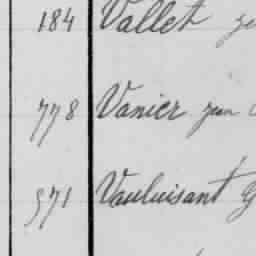 184 Vallet
778 Vanier
571 Vauluisant